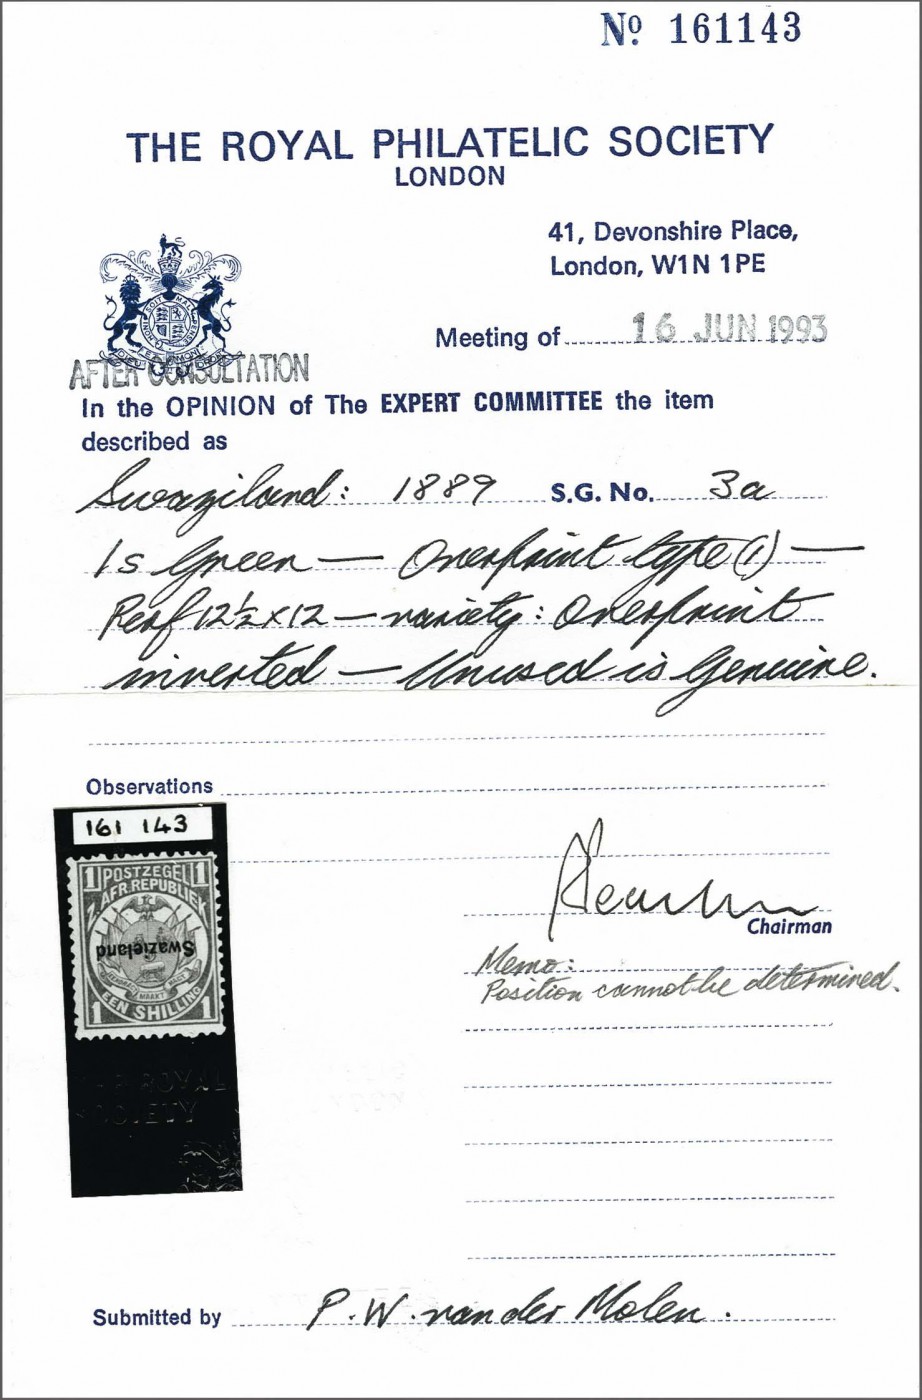 Nº 161143
THE ROYAL PHILATELIC SOCIETY
LONDON
41, Devonshire Place,
London, W1N 1PE
Meeting of 16 JUN 1993
AFTER CONSULTATION
In the OPINION of The EXPERT COMMITTEE the item
described as
Swaziland: 1889 S.G. No. 3a
1s Green — Overprint type (1) —
Perf 12½ x 12 — variety: Overprint
inverted — Unused is Genuine.
Observations
161 143
1 POSTZEGEL 1
Z. AFR. REPUBLIEK
Swazieland
MAAKT
1 EEN SHILLING 1
ROYAL
SOCIETY
Chairman
Memo:
Position cannot be determined.
Submitted by P.W. van der Molen.